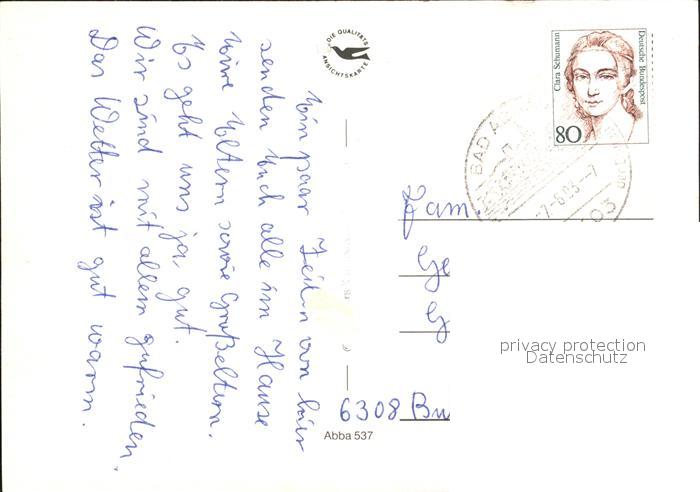 Ein paar Zeilen von hier
senden Euch alle im Hause
Eure Eltern sowie Großeltern.
Es geht uns ja, gut.
Wir sind mit allem zufrieden.
Das Wetter ist gut warm.
DIE QUALITÄTS
ANSICHTSKARTE
Clara Schumann
Deutsche Bundespost
80
BAD
-7
03
Fam.
6308 Bu
Abba 537
privacy protection
Datenschutz